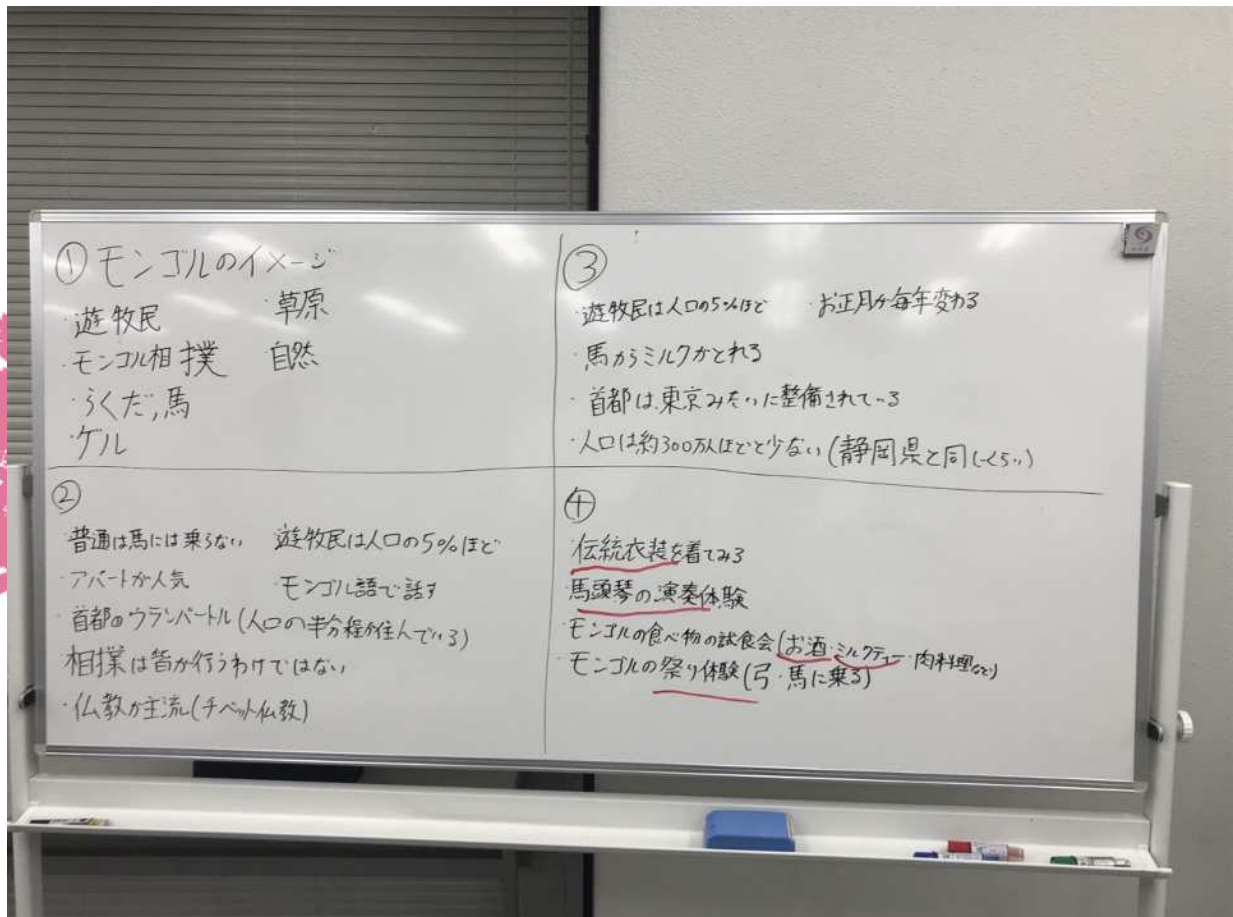 ① モンゴルのイメージ
・遊牧民 ・草原
・モンゴル相撲 ・自然
・らくだ,馬
・ゲル
②
・普通は馬には乗らない ・遊牧民は人口の5%ほど
・アパートが人気 ・モンゴル語で話す
・首都のウランバートル(人口の半分程が住んでいる)
・相撲は皆が行うわけではない
・仏教が主流(チベット仏教)
③
・遊牧民は人口の5%ほど ・お正月が毎年変わる
・馬からミルクがとれる
・首都は、東京みたいに整備されている
・人口は約300万人ほどと少ない(静岡県と同じくらい)
④
・伝統衣装を着てみる
・馬頭琴の演奏体験
・モンゴルの食べ物の試食会(お酒・ミルクティー・肉料理など)
・モンゴルの祭り体験(弓・馬に乗る)